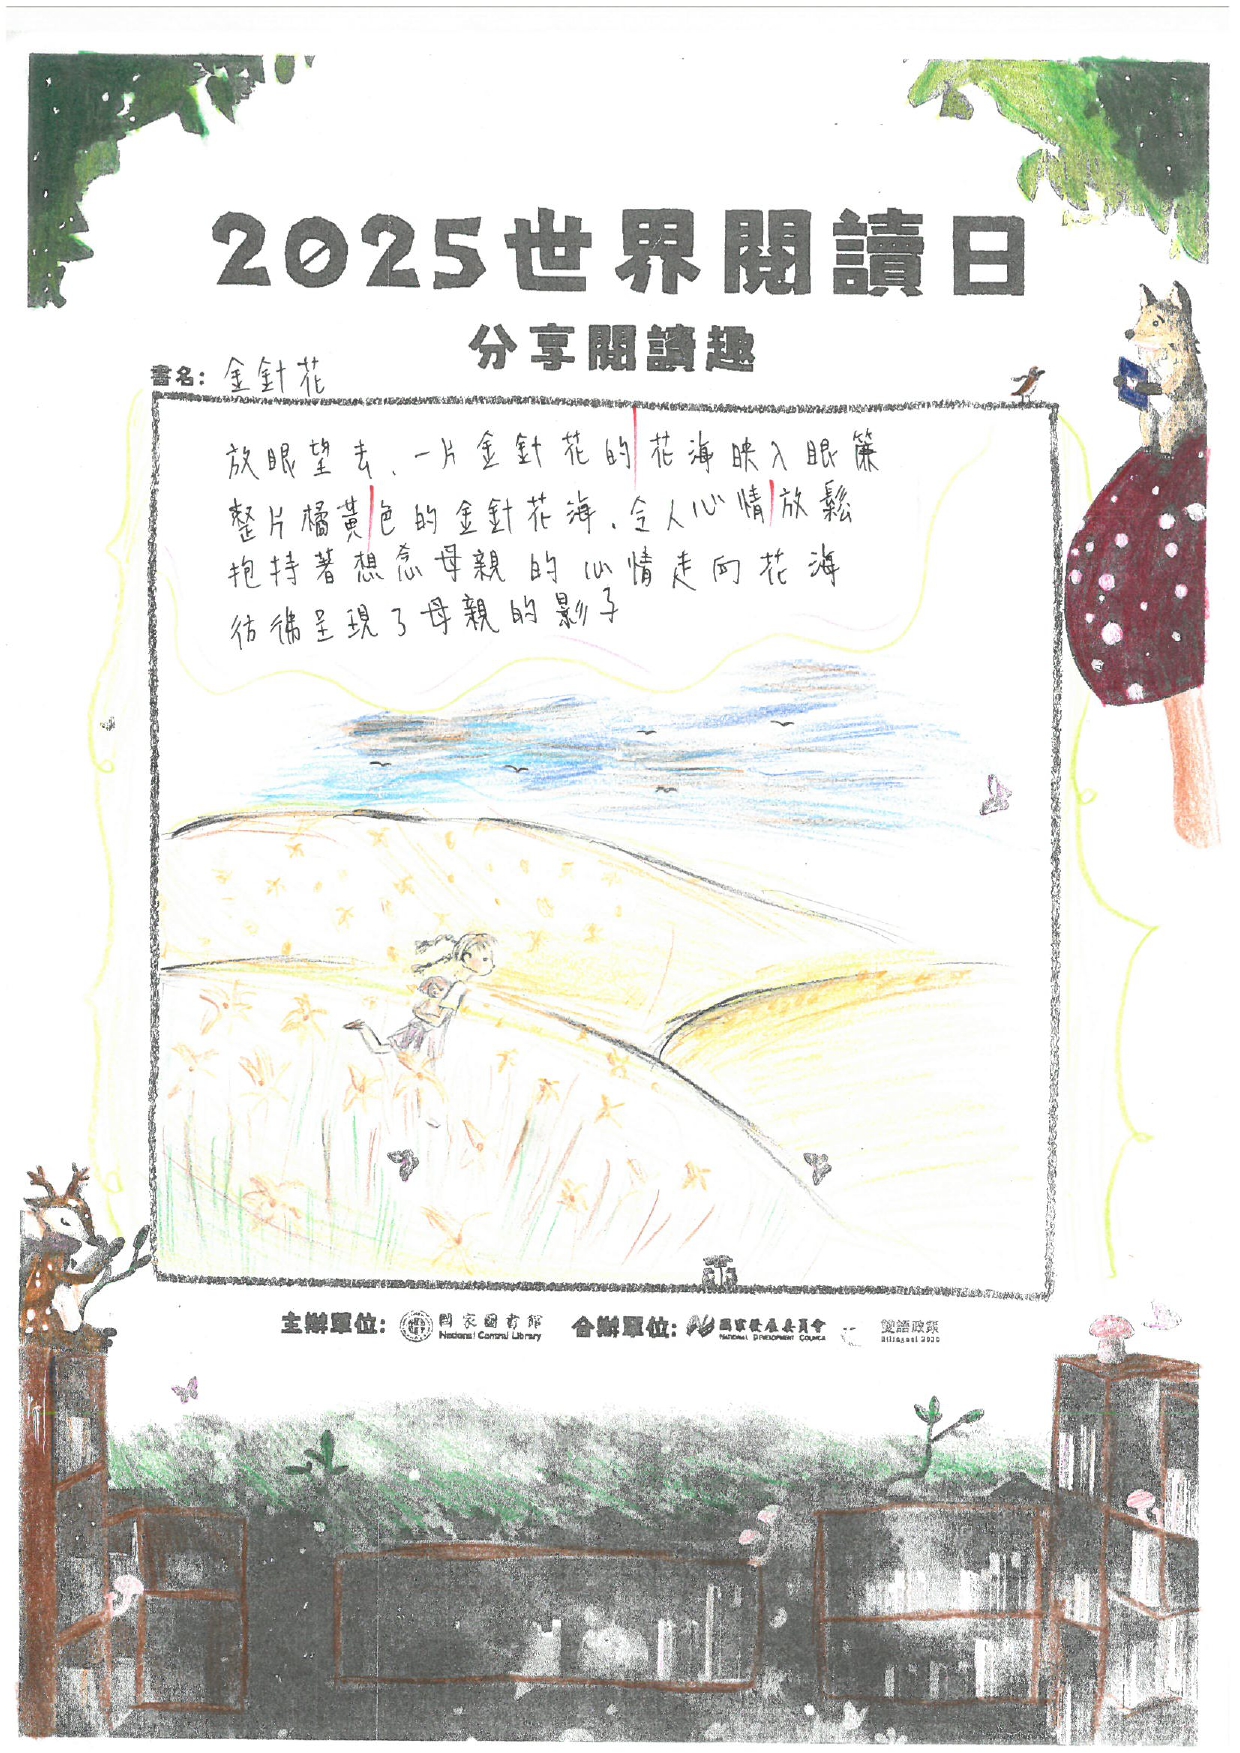 2025世界閱讀日
分享閱讀趣
書名：金針花
放眼望去、一片金針花的花海映入眼簾
整片橘黃色的金針花海、令人心情放鬆
抱持著想念母親的心情走向花海
彷彿呈現了母親的影子
主辦單位： 國家圖書館 National Central Library 合辦單位： 國家發展委員會 NATIONAL DEVELOPMENT COUNCIL 雙語政策 Bilingual 2030